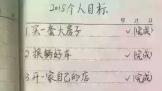 2015个人目标
1.买一套大房子 ✓(完成)
2.换辆好车 ✓(完成)
3.开一家自己的店 ✓(完成)